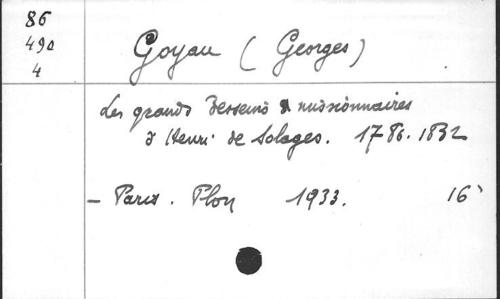 86
490
4
Goyau (Georges)
Les grands Desseins missionnaires
d'Henri de Solages. 1786.1832
– Paris. Plon 1933. 16°